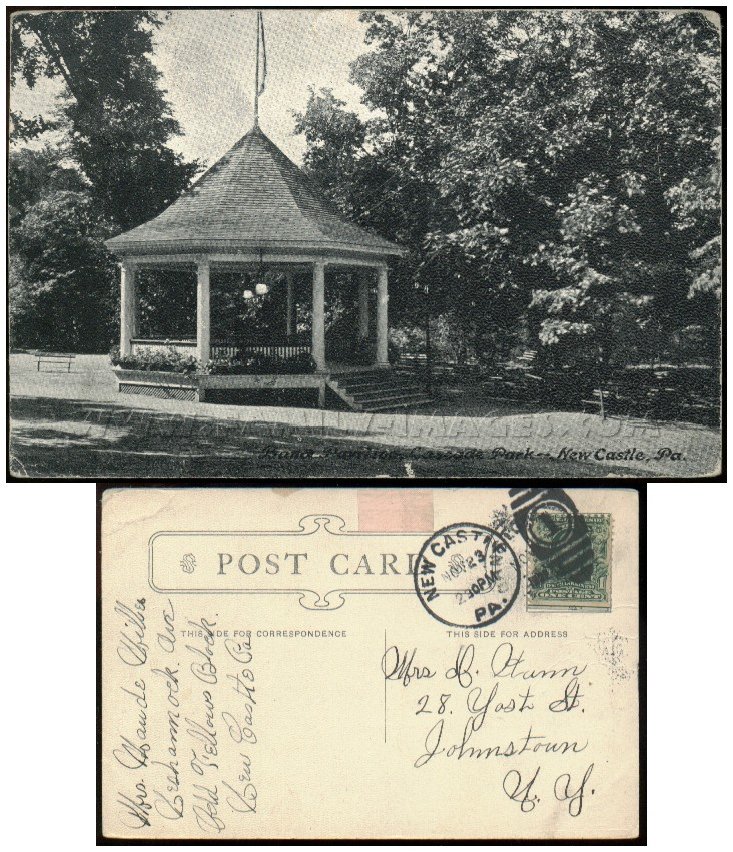 Band Pavilion, Cascade Park - New Castle, Pa.
POST CARD
NEW CASTLE
NOV 23
230PM
PA.
ONE CENT
THIS SIDE FOR CORRESPONDENCE
THIS SIDE FOR ADDRESS
Mrs. Maude
Neshannock. Ave
Odd Fellows Block.
New Castle Pa
Mrs D. Hann
28. Yost St.
Johnstown
N. Y.